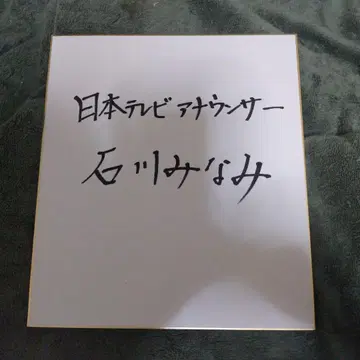 日本テレビアナウンサー
石川みなみ